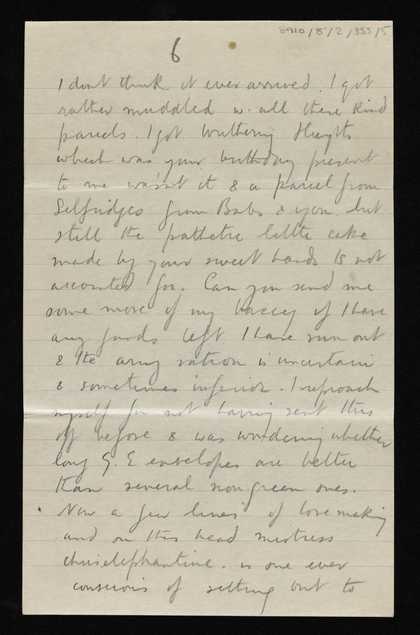 8910/5/2/353/5
6
I dont think it ever arrived. I got
rather muddled w. all these kind
parcels. I got Wuthering Heights
which was your birthday present
to me was'nt it & a parcel from
Selfridges from Babs & you. but
still the pathetic little cake
made by your sweet hands is not
accounted for. Can you send me
some more of my baccy if I have
any funds left I have run out
& the army ration is uncertain
& sometimes inferior. I reproach
myself for not having sent this
off before & was wondering whether
long G. E envelopes are better
than several non green ones.
Now a few lines of love making
and on this head mistress
is one ever
conscious of setting out to